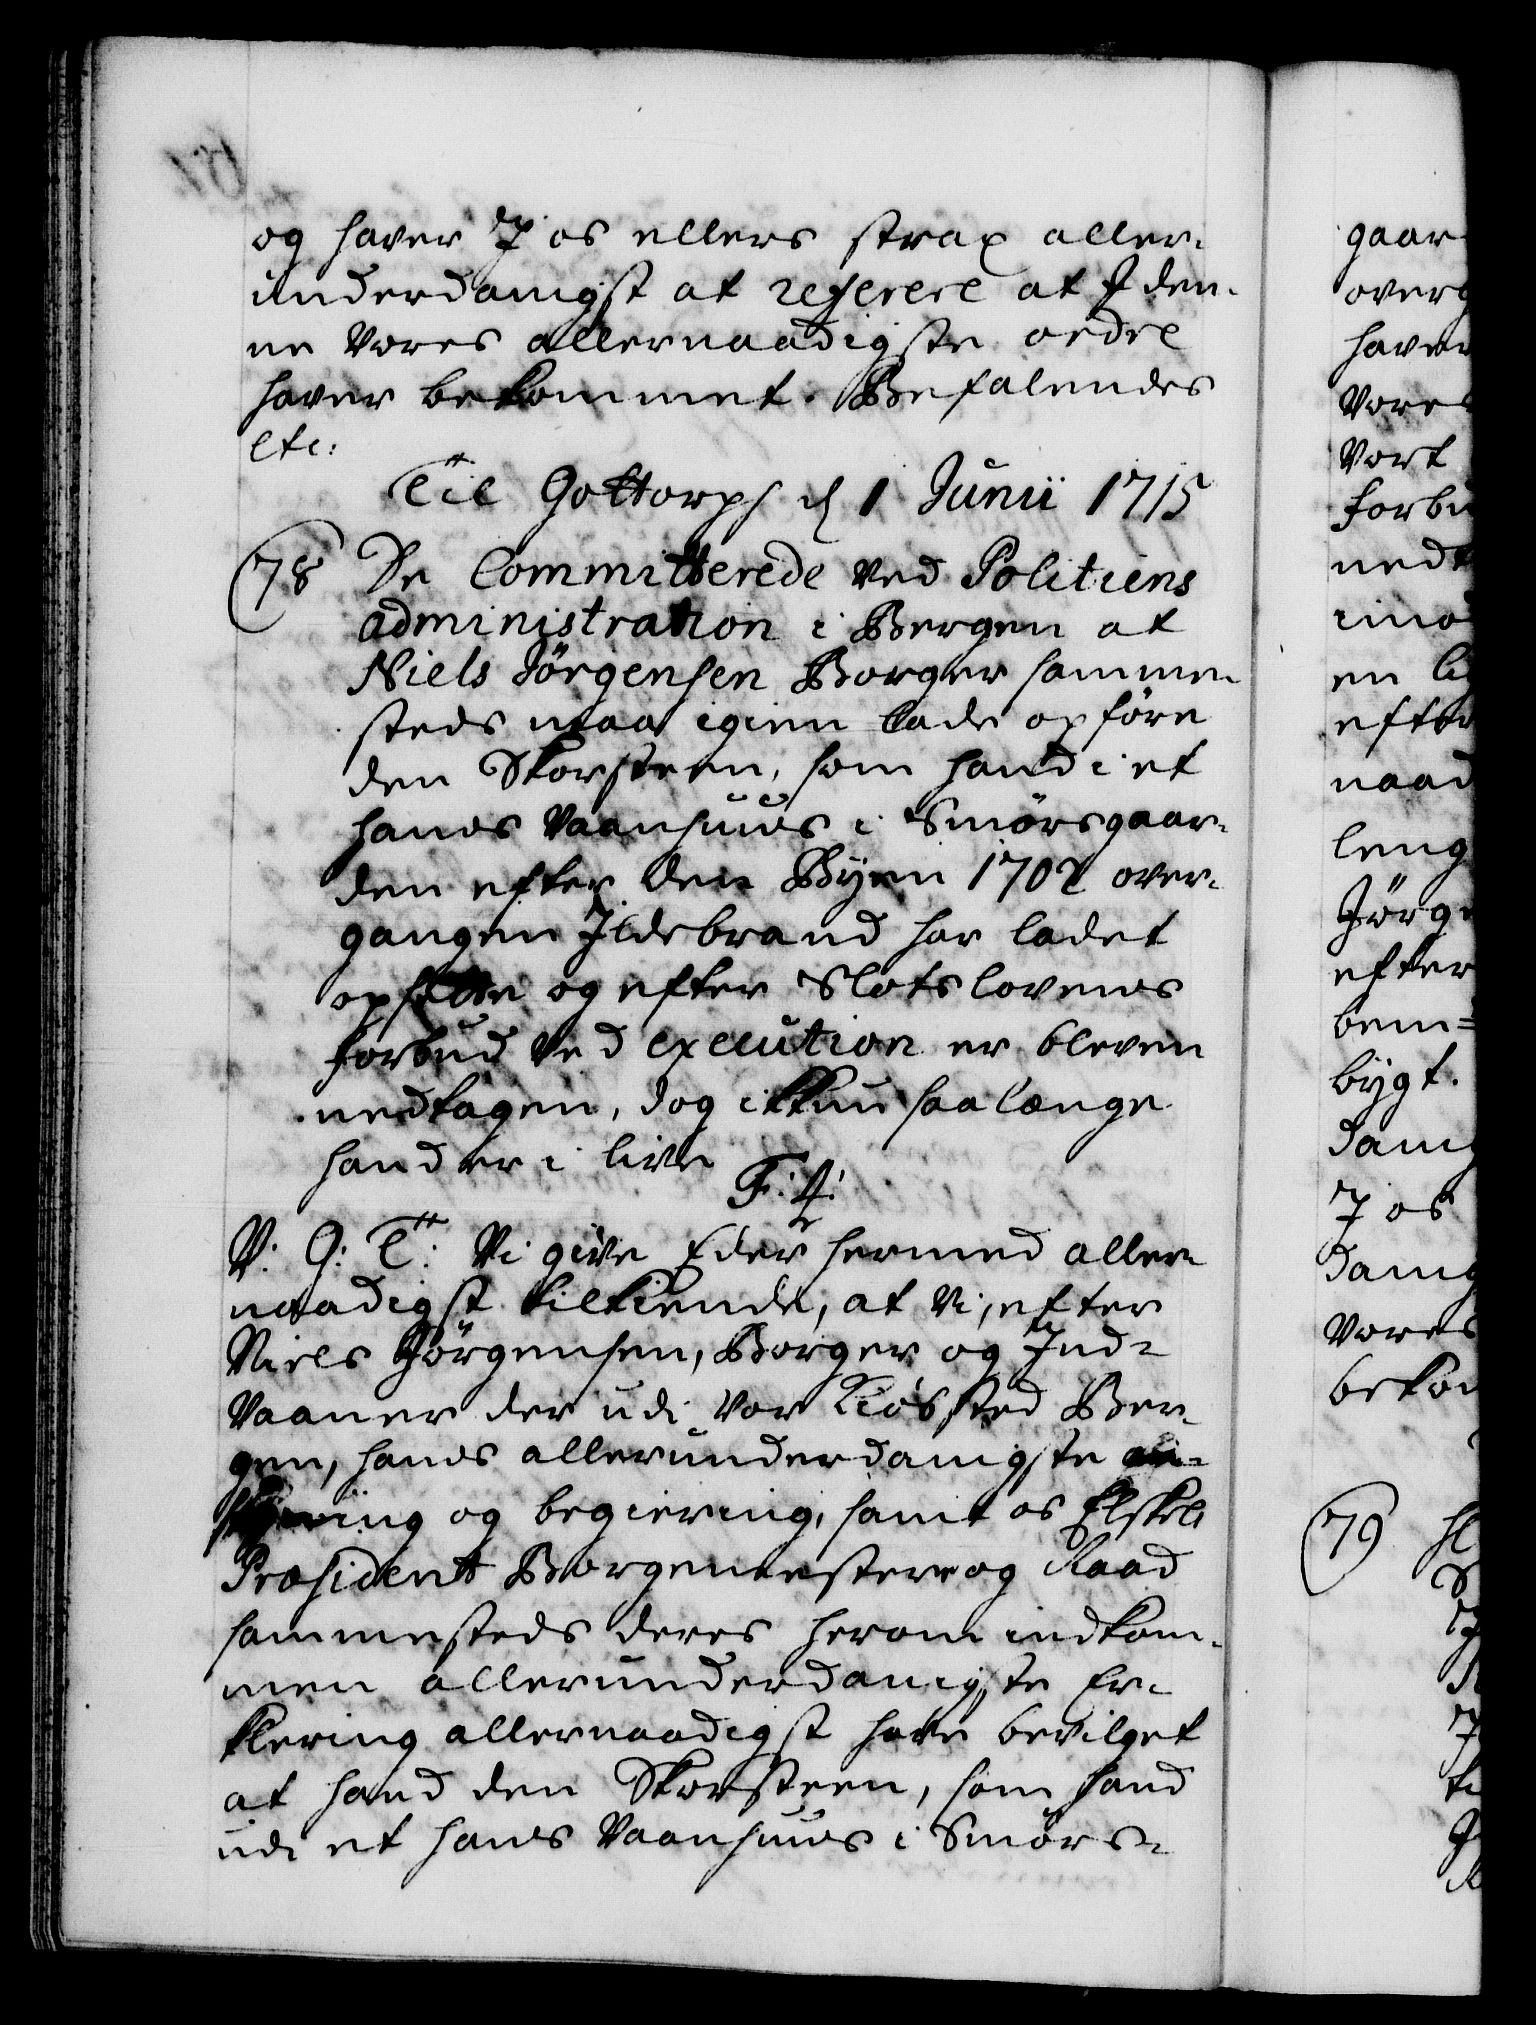 og haver I os ellers strax aller-
underdanigst at referere at I den-
ne Vores allernaadigste ordre
haver bekommet. Befalendes
etc:
Til Gottorph d 1 Junii 1715
78 De Committerede ved Politiens
administration i Bergen at
Niels Jörgensen Borger samme-
steds maa igien lade opføre
den Skorsteen, som hand i et
hands Vaanhuus i Smörsgaar-
den efter den Byen 1702 over-
gangen Ildebrand har ladet
opsette og efter Slotslovens
forbud ved execution er bleven
nedtagen, dog ikkun saa længe
hand er i live
F: 4:
V: G: T: Vi give Eder hermed aller
naadigst tilkiende, at Vi, efter
Niels Jörgensen, Borger og Ind-
vaaner der udi vor Kiøbsted Ber-
gen, hands allerunderdanigste an-
søgning og begiering, samt os Elskel
Præsident Borgemestere og Raad
sammesteds deres herom indkom-
men allerunderdanigste Er-
klering allernaadigst have bevilget
at hand den Skorsteen, som hand
udi et hans Vaanhuus i Smörs-
gaar
overg
haver
Vores
Vort
forbu
nedt
imo
en
efter
naad
leng
Jörge
efter
bem=
bygt.
danig
I os
danig
Vores
bekom
79